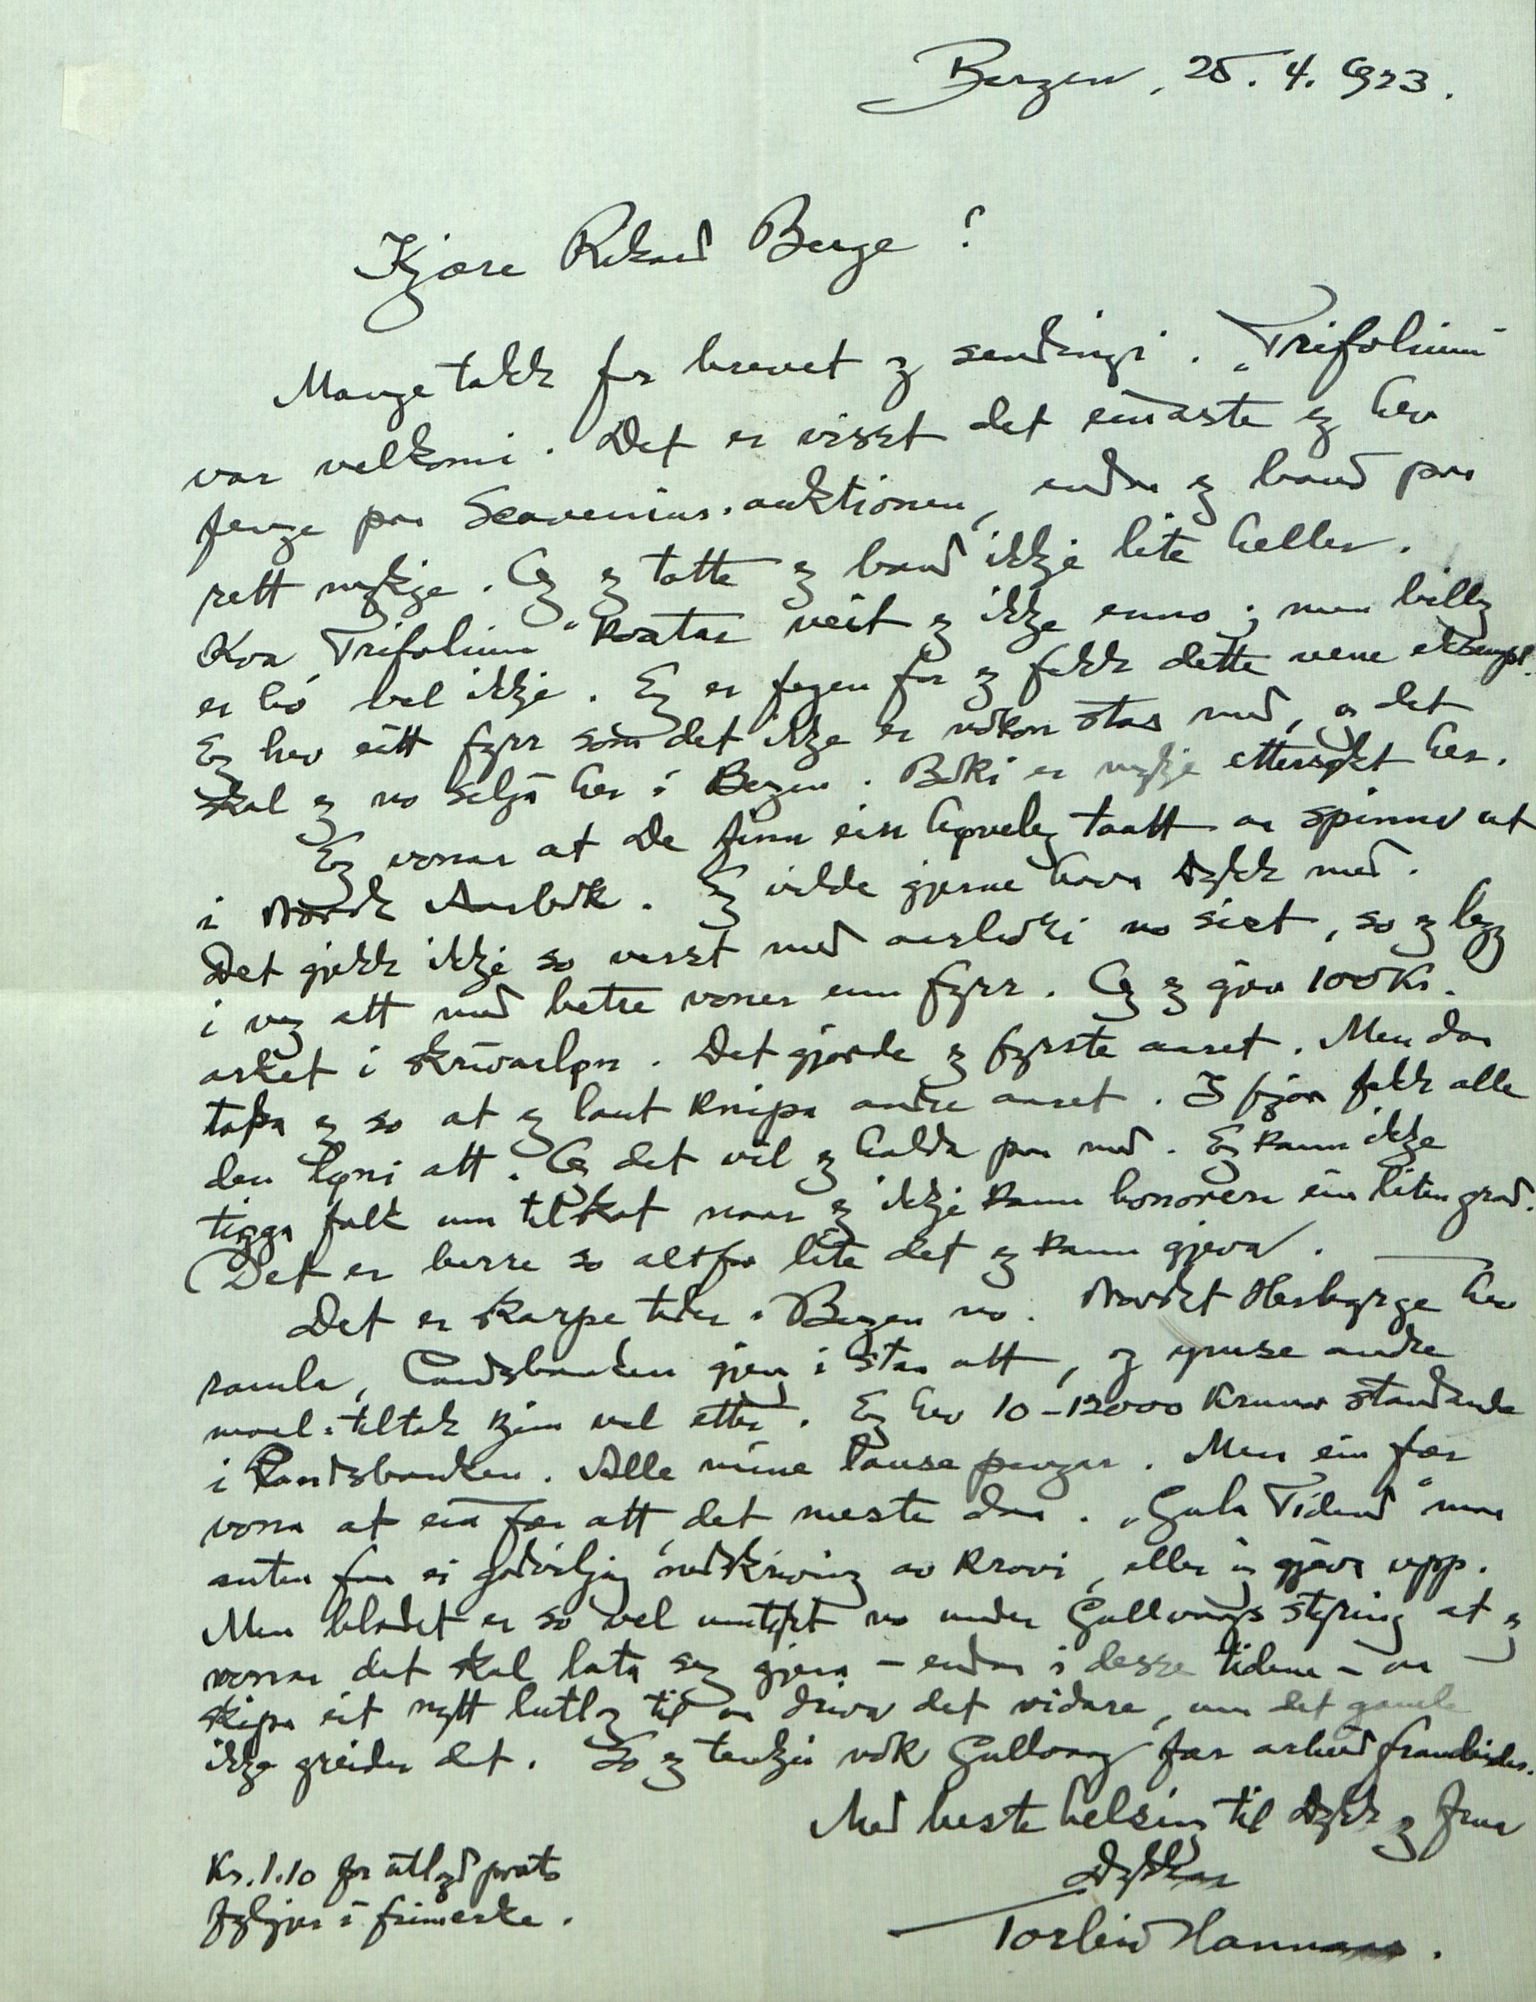 Bergen, 25. 4. 1923.
Kjære Rikard Berge!
Mange takk for brevet og sendingi. „Trifolium"
var velkomi. Det er visst det einaste eg hev
fenge paa Scavenius-auktionen, endaa eg baud paa
rett mykje. Og eg totte eg baud ikkje lite heller.
Kva „Trifolium" kostar veit eg ikkje enno; men billeg
er ho vel ikkje. Eg er fegen for eg fekk dette vene eksempl.
Eg hev eitt fyrr som det ikkje er nokon stas med, og det
skal eg no selja her i Bergen. Boki er mykje ettersøkt her.
Eg vonar at De finn ein høveleg taatt aa spinna ut
i Norsk Aarbok. Eg vilde gjerne hava Dykk med.
Det gjekk ikkje so verst med aarboki no sist, so eg legg
i veg att med betre voner enn fyrr. Og eg gjev 100 Kr.
arket i skrivarløn. Det gjorde eg fyrste aaret. Men daa
tapa eg so at eg laut knipa andre aaret. I fjor fekk alle
den løni att. Og det vil eg halda paa med. Eg kann ikkje
tigga folk um tilskot naar eg ikkje kann honorera ein liten grad.
(Det er berre so altfor lite det eg kann gjeva.
Det er skarpe tider i Bergen no. Norskt Herbyrge hev
ramla, Landsbanken gjen i staa att, og ymse andre
maal-tiltak kjem vel etter. Eg hev 10-12000 kronor standande
i Landsbanken. Alle mine lause pengar. Men ein fær
vona at ein fær att det meste daa. „Gula Tidend" maa
anten faa ei godviljug nedskriving av kravi, eller og gjeva upp.
Men bladet er so vel umtykt no under Gullvaags styring at eg
vonar det skal lata seg gjera – endaa i desse tidene – aa
skipa eit nytt lutlag til aa driva det vidare, um det gamle
ikkje greider det. So eg tenkjer nok Gullvaag fær arbeid frambides.
Med beste helsing til Dykk og frua
Dykkar
Torleiv Hannaas.
Kr. 1.10 for utlagd porto
fylgjer i frimerke.